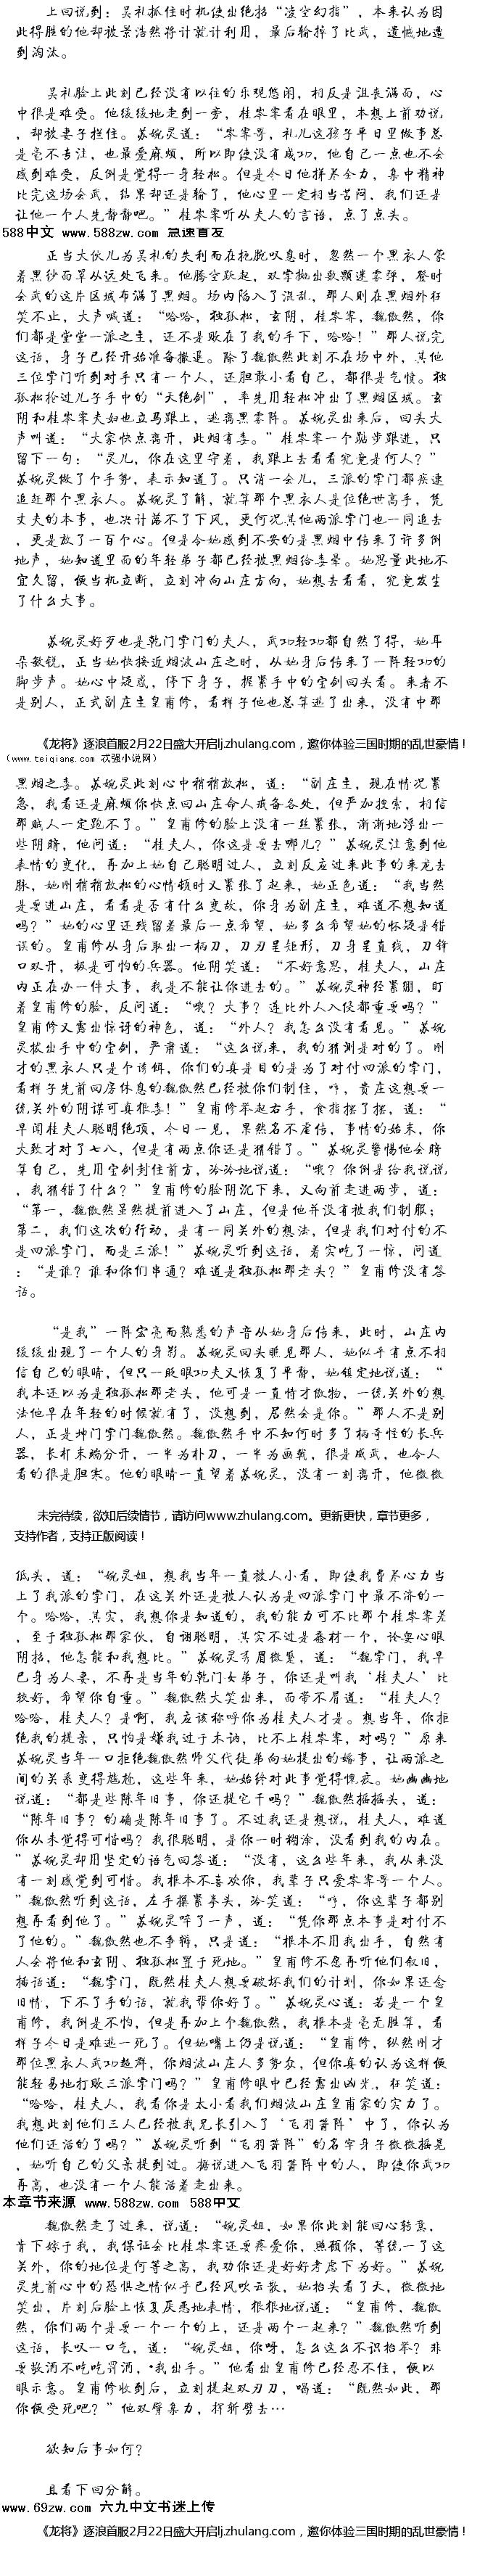 上回说到：吴礼抓住时机使出绝招“凌空幻指”，本来认为因
此得胜的他却被景浩然将计就计利用，最后输掉了比武，遗憾地遭
到淘汰。
吴礼脸上此刻已经没有以往的乐观悠闲，相反是沮丧满面，心
中很是难受。他缓缓地走到一旁，桂岑零看在眼里，本想上前劝说
，却被妻子拦住。苏婉灵道：“岑零哥，礼儿这孩子平日里做事总
是毫不专注，也最爱麻烦，所以即使没有成功，他自己一点也不会
感到难受，反倒是觉得一身轻松。但是今日他拼尽全力，集中精神
比完这场会武，结果却还是输了，他心里一定相当苦闷，我们还是
让他一个人先静静吧。”桂岑零听从夫人的言语，点了点头。
588中文 www.588zw.com 急速首发
正当大伙儿为吴礼的失利而在扼腕叹息时，忽然一个黑衣人蒙
着黑纱面罩从远处飞来。他腾空跃起，双掌抛出数颗迷雾弹，登时
会武的这片区域布满了黑烟。场内陷入了混乱，那人则在黑烟外狂
笑不止，大声喊道：“哈哈，独孤松，玄阴，桂岑零，魏傲然，你
们都是堂堂一派之主，还不是败在了我的手下，哈哈！”那人说完
这话，身子已经开始准备撤退。除了魏傲然此刻不在场中外，其他
三位掌门听到对手只有一个人，还胆敢小看自己，都很是气愤。独
孤松抢过儿子手中的“天绝剑”，率先用轻松冲出了黑烟区域。玄
阴和桂岑零夫妇也立马跟上，逃离黑雾阵。苏婉灵出来后，回头大
声叫道：“大家快点离开，此烟有毒。”桂岑零一个跨步跟进，只
留下一句：“灵儿，你在这里守着，我跟上去看看究竟是何人？”
苏婉灵做了个手势，表示知道了。只消一会儿，三派的掌门都疾速
追赶那个黑衣人。苏婉灵了解，就算那个黑衣人是位绝世高手，凭
丈夫的本事，也决计落不了下风，更何况其他两派掌门也一同追去
，更是放了一百个心。但是令她感到不安的是黑烟中传来了许多倒
地声，她知道里面的年轻弟子都已经被黑烟给毒晕。她思量此地不
宜久留，便当机立断，立刻冲向山庄方向，她想去看看，究竟发生
了什么大事。
苏婉灵好歹也是乾门掌门的夫人，武功轻功都自然了得，她耳
朵敏锐，正当她快接近烟波山庄之时，从她身后传来了一阵轻功的
脚步声。她心中疑惑，停下身子，握紧手中的宝剑回头看。来者不
是别人，正式副庄主皇甫修，看样子他也总算逃了出来，没有中那
《龙将》逐浪首服2月22日盛大开启lj.zhulang.com，邀你体验三国时期的乱世豪情！
（www.teiqiang.com 忒强小说网）
黑烟之毒。苏婉灵此刻心中稍稍放松，道：“副庄主，现在情况紧
急，我看还是麻烦你快点回山庄命人戒备各处，但严加搜索，相信
那贼人一定跑不了。”皇甫修的脸上没有一丝紧张，渐渐地浮出一
些阴暗，他问道：“桂夫人，你这是要去哪儿？”苏婉灵注意到他
表情的变化，再加上她自己聪明过人，立刻反应过来此事的来龙去
脉，她刚稍稍放松的心情顿时又紧张了起来，她正色道：“我当然
是要进山庄，看看是否有什么变故，你身为副庄主，难道不想知道
吗？”她的心里还残留着最后一点希望，她多么希望她的怀疑是错
误的。皇甫修从身后取出一柄刀，刀刃呈矩形，刀身呈直线，刀锋
口双开，极是可怕的兵器。他阴笑道：“不好意思，桂夫人，山庄
内正在办一件大事，我是不能让你进去的。”苏婉灵神经紧绷，盯
着皇甫修的脸，反问道：“哦？大事？连比外人入侵都重要吗？”
皇甫修又露出惊讶的神色，道：“外人？我怎么没有看见。”苏婉
灵拔出手中的宝剑，严肃道：“这么说来，我的猜测是对的了。刚
才的黑衣人只是个诱饵，你们的真是目的是为了对付四派的掌门，
看样子先前回房休息的魏傲然已经被你们制住，哼，贵庄这想要一
统关外的阴谋可真狠毒！”皇甫修举起右手，食指摆了摆，道：“
早闻桂夫人聪明绝顶，今日一见，果然名不虚传，事情的始末，你
大致才对了七八，但是有两点你还是猜错了。”苏婉灵警惕他会暗
算自己，先用宝剑封住前方，冷冷地说道：“哦？你倒是给我说说，
，我猜错了什么？”皇甫修的脸阴沉下来，又向前走进两步，道：
“第一，魏傲然虽然提前进入了山庄，但是他并没有被我们制服；
第二，我们这次的行动，是有一同关外的想法，但是我们对付的不
是四派掌门，而是三派！”苏婉灵听到这话，着实吃了一惊，问道
：“是谁？谁和你们串通？难道是独孤松那老头？”皇甫修没有答
话。
“是我”一阵宏亮而熟悉的声音从她身后传来，此时，山庄内
缓缓出现了一个人的身影。苏婉灵回头瞧见那人，她似乎有点不相
信自己的眼睛，但只一眨眼功夫又恢复了平静，她镇定地说道：“
我本还以为是独孤松那老头，他可是一直恃才傲物，一统关外的想
法他早在年轻的时候就有了，没想到，居然会是你。”那人不是别
人，正是坤门掌门魏傲然。魏傲然手中不知何时多了柄奇怪的长兵
器，长杆末端分开，一半为朴刀，一半为画戟，很是威武，也令人
看的很是胆寒。他的眼睛一直望着苏婉灵，没有一刻离开，他微微
未完待续，欲知后续情节，请访问www.zhulang.com。更新更快，章节更多，
支持作者，支持正版阅读！
低头，道：“婉灵姐，想我当年一直被人小看，即使我费尽心力当
上了我派的掌门，在这关外还是被人认为是四派掌门中最不济的一
个。哈哈，其实，我想你是知道的，我的能力可不比那个桂岑零差
，至于独孤松那家伙，自诩聪明，其实不过是蠢材一个，论要心眼
阴招，他怎能和我想比。”苏婉灵秀眉微蹙，道：“魏掌门，我早
已身为人妻，不再是当年的乾门女弟子，你还是叫我‘桂夫人’比
较好，希望你自重。”魏傲然大笑出来，面带不屑道：“桂夫人？
哈哈，桂夫人？是啊，我应该称呼你为桂夫人才是。想当年，你拒
绝我的提亲，只怕是嫌我过于木讷，比不上桂岑零，对吗？”原来
苏婉灵当年一口拒绝魏傲然师父代徒弟向她提出的婚事，让两派之
间的关系变得尴尬，这些年来，她始终对此事觉得愧疚。她幽幽地
说道：“都是些陈年旧事，你还提它干吗？”魏傲然摇摇头，道：
“陈年旧事？的确是陈年旧事了。不过我还是想说，桂夫人，难道
你从未觉得可惜吗？我很聪明，是你一时糊涂，没看到我的内在。
”苏婉灵却用坚定的语气回答道：“没有，这么些年来，我从来没
有一刻感觉到可惜。我根本不喜欢你，我辈子只爱岑零哥一个人。
”魏傲然听到这话，左手握紧拳头，冷笑道：“哼，你这辈子都别
想再看到他了。”苏婉灵啐了一声，道：“凭你那点本事是对付不
了他的。”魏傲然也不争辩，只是道：“根本不用我出手，自然有
人会将他和玄阴、独孤松置于死地。”皇甫修不愿再听他们叙旧，
插话道：“魏掌门，既然桂夫人想要破坏我们的计划，你如果还念
旧情，下不了手的话，就我帮你好了。”苏婉灵心道：若是一个皇
甫修，我倒是不怕，但是再加上个魏傲然，我根本是毫无胜算，看
样子今日是难逃一死了。但她嘴上仍是说道：“皇甫修，纵然刚才
那位黑衣人武功超群，你烟波山庄人多势众，但你真的认为这样便
能轻易地打败三派掌门吗？”皇甫修眼中已经露出凶光，狂笑道：
“哈哈，桂夫人，我看你是太小看我们烟波山庄皇甫家的实力了。
我想此刻他们三人已经被我兄长引入了‘飞羽箭阵’中了，你认为
他们还活的了吗？”苏婉灵听到“飞羽箭阵”的名字身子微微摇晃
，她听自己的父亲提到过。据说进入飞羽箭阵中的人，即使你武功
再高，也没有一个人能活着走出来。
本章节来源 www.588zw.com 588中文
魏傲然走了过来，说道：“婉灵姐，如果你此刻能回心转意，
肯下嫁于我，我保证会比桂岑零还要疼爱你，照顾你，等统一了这
关外，你的地位是何等之高，我劝你还是好好考虑下为好。”苏婉
灵先前心中的恐惧之情似乎已经风吹云散，她抬头看了天，微微地
笑出，片刻后脸上恢复厌恶地表情，狠狠地说道：“皇甫修，魏傲
然，你们两个是要一个一个的上，还是两个一起来？”魏傲然听到
这话，长叹一口气，道：“婉灵姐，你呀，怎么这么不识抬举？非
要敬酒不吃吃罚酒，我出手。”他看出皇甫修已经忍不住，便以
眼示意。皇甫修收到后，立刻提起双刃刀，喝道：“既然如此，那
你便受死吧？”他双臂集力，挥斩劈去…
欲知后事如何？
且看下回分解。
www.69zw.com 六九中文书迷上传
《龙将》逐浪首服2月22日盛大开启lj.zhulang.com，邀你体验三国时期的乱世豪情！